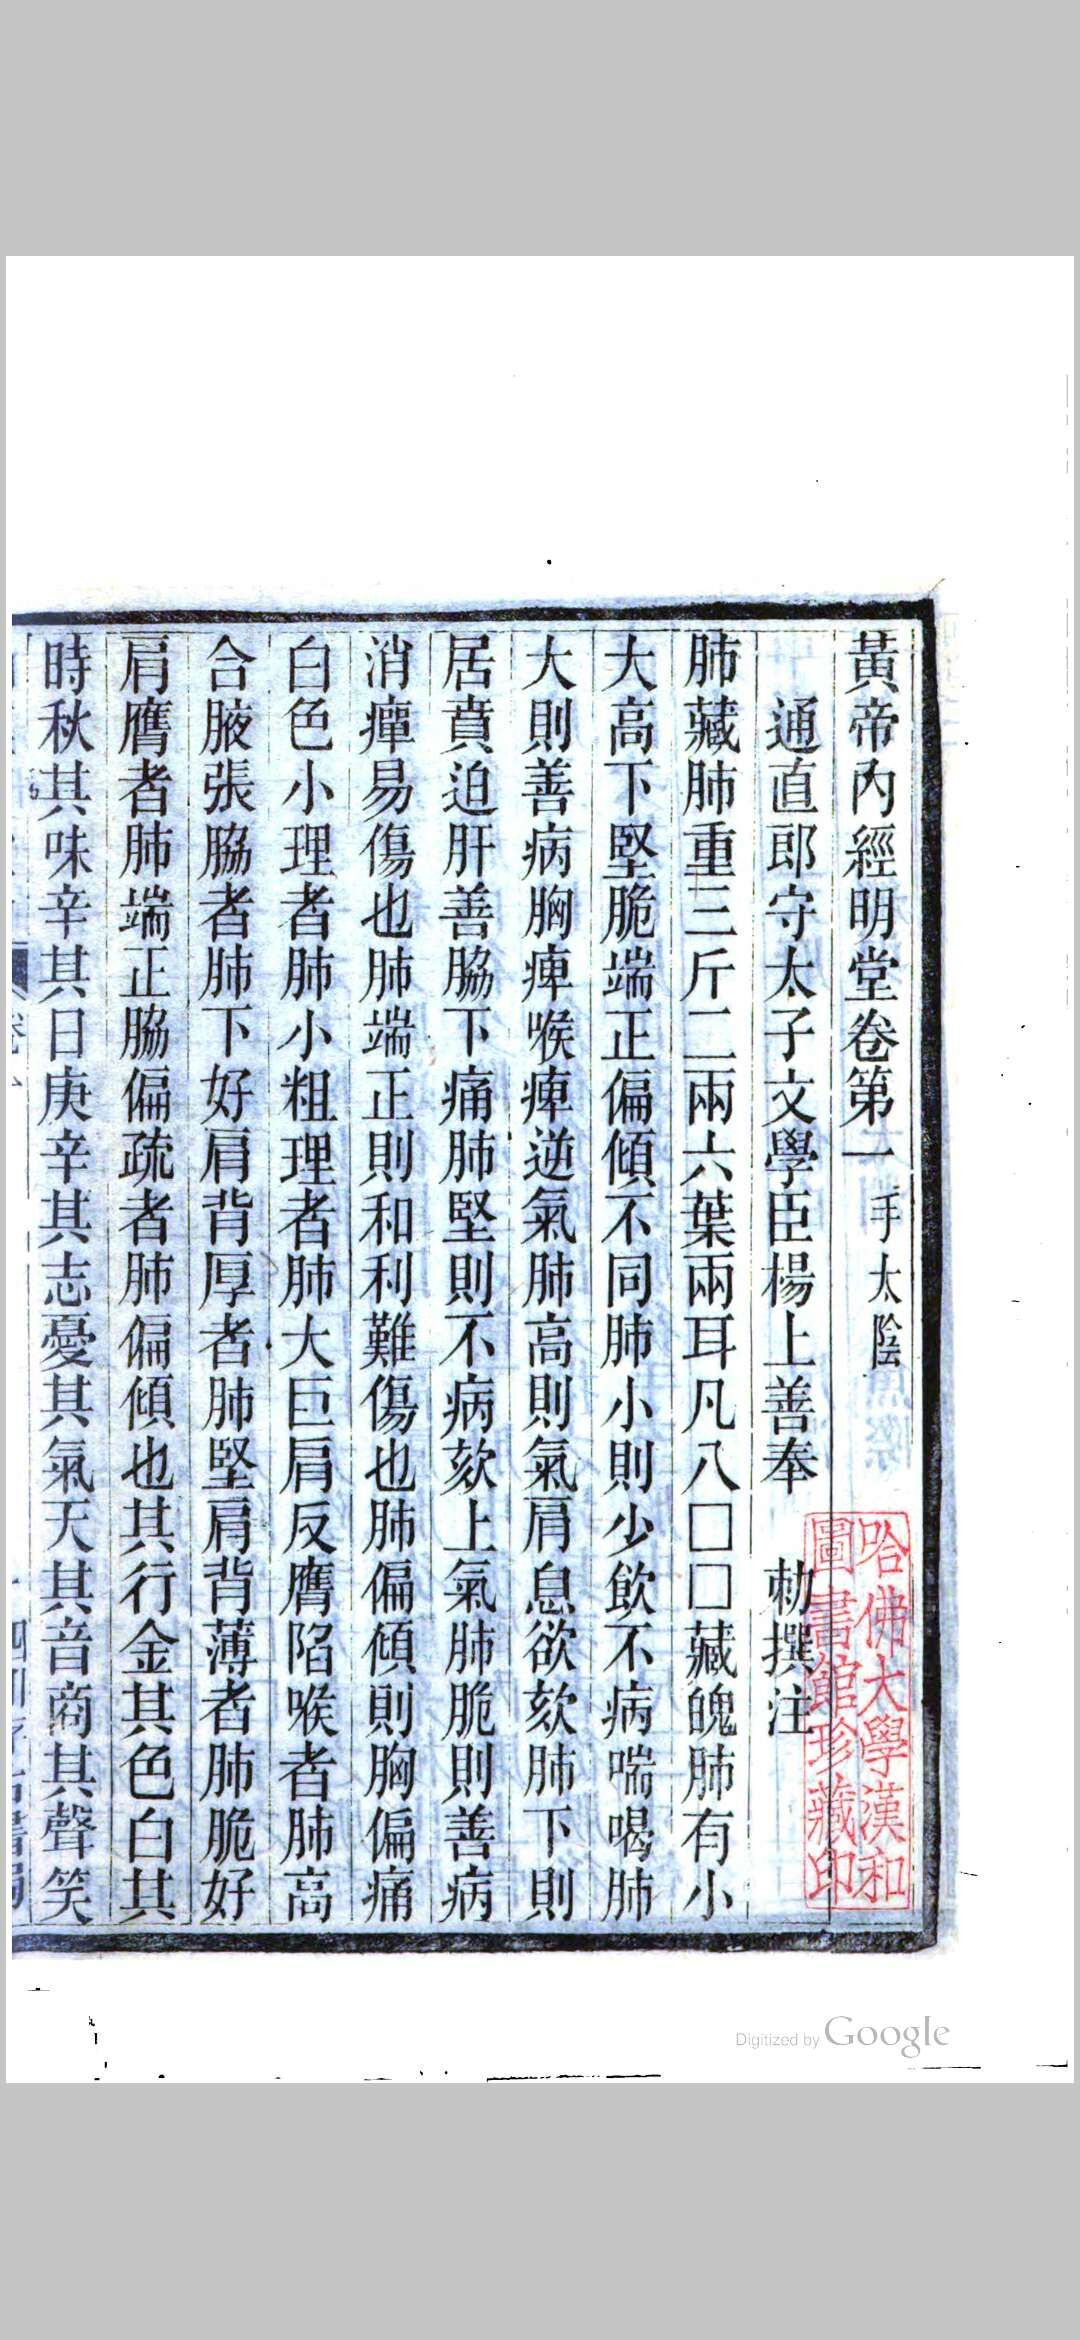 黃帝內經明堂卷第一 手太陰
通直郎守太子文學臣楊上善奉 勅撰注
肺藏肺重三斤二兩六葉兩耳凡八□□藏魄肺有小
大高下堅脆端正偏傾不同肺小則少飲不病喘喝肺
大則善病胸痺喉痺逆氣肺高則氣肩息欲欬肺下則
居賁迫肝善脇下痛肺堅則不病欬上氣肺脆則善病
消癉易傷也肺端正則和利難傷也肺偏傾則胸偏痛
白色小理者肺小粗理者肺大巨肩反膺陷喉者肺高
合腋張脇者肺下好肩背厚者肺堅肩背薄者肺脆好
肩膺者肺端正脇偏疏者肺偏傾也其行金其色白其
時秋其味辛其日庚辛其志憂其氣天其音商其聲笑
哈佛大學漢和
圖書館珍藏印
Digitized by Google